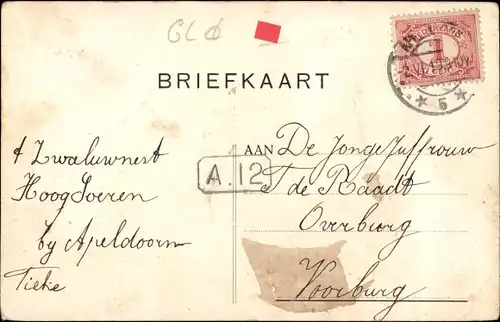 GL
BRIEFKAART
't Zwaluwnest
Hoog Soeren
by Apeldoorn
Tieke
A.12
AAN De Jonge Juffrouw
T de Raadt
Overburg
Voorburg
1
5